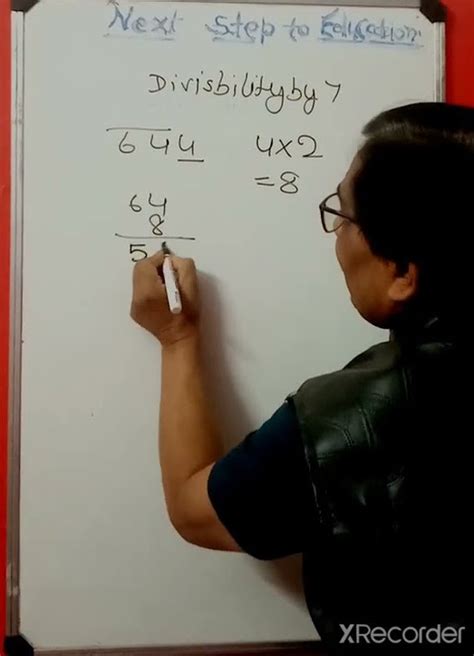 Next Step to Education
Divisbility by 7
644 4×2
=8
64
8
5
XRecorder